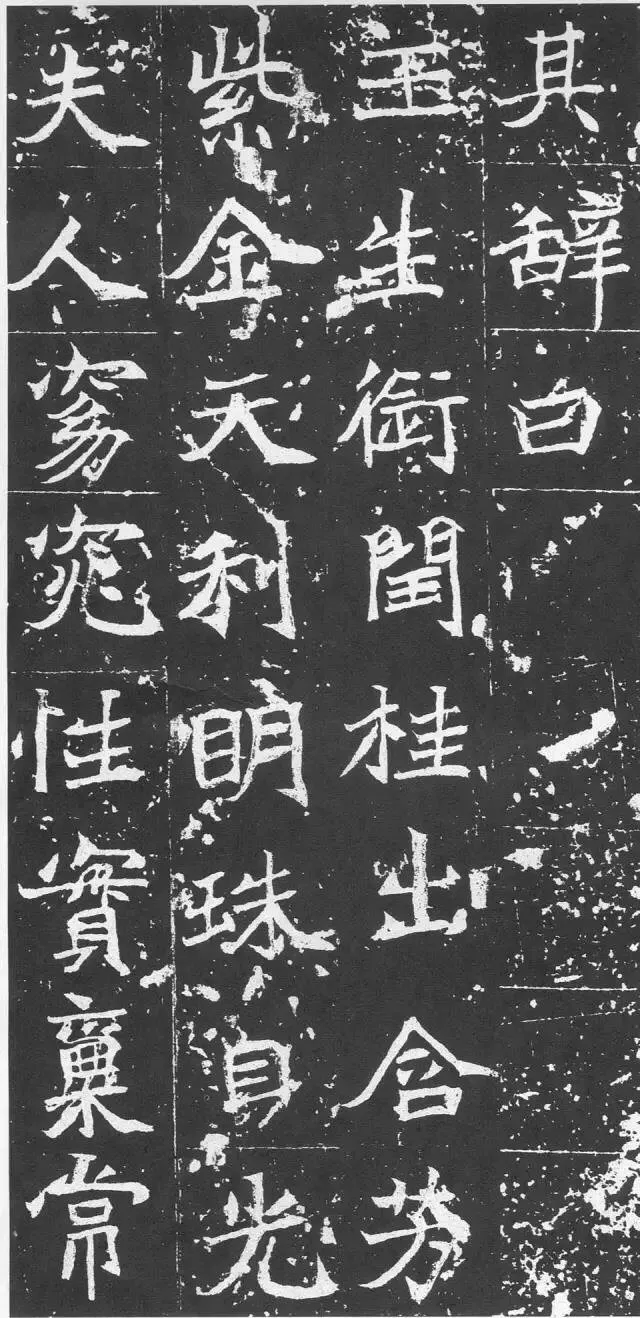 其辞白
玉生衒閏桂出含芳
紫金天利明珠自光
夫人窈窕性實稟常